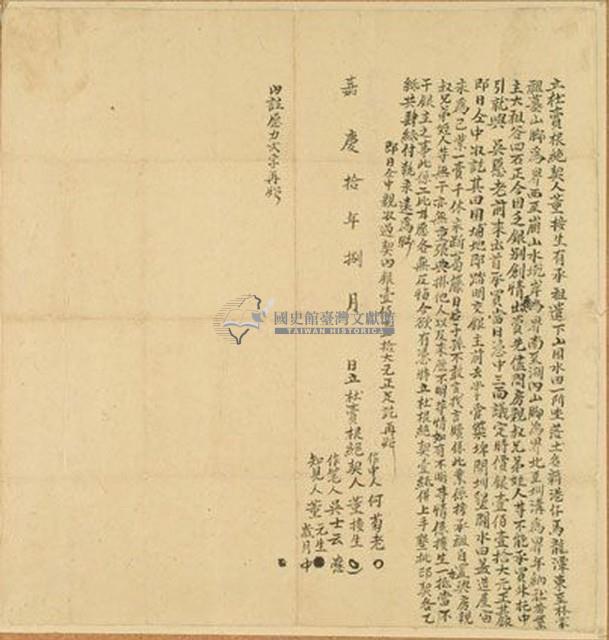 立杜賣根絕契人董接生有承祖遺下山田水田一所坐落土名新港仔馬龍潭東至林家
祖墓山腳為界西至崩山水坑岸為界南至湖內山腳為界北至圳溝為界年納社番業
主大租谷四石正今因乏銀別創情出賣先儘問房親叔兄弟姪人等不能承買外托中
引就與吳惡老前來出首承買當日憑中三面議定時價銀壹佰壹拾大元正其銀
即日仝中收訖其田園埔地即踏明交銀主前去掌管築埤開圳墾闢水田蓋造屋宇
永為己業一賣千休永斷葛藤日後子孫不敢言找言贖保此業係接承祖自置與房親
叔兄弟姪人等無干亦無重張典掛他人以及來歷不明等情如有不明等情係接生一抵當不
干銀主之事此係二比甘愿各無反悔今欲有憑將立杜根絕契壹紙併上手墾批印契各乙
紙共肆紙付執永遠為炤
即日仝中親收過契內銀壹佰壹拾大元正足訖再炤
嘉慶拾年捌月 日立杜賣根絕契人董接生
作中人何菊老
作笔人吳士云
知見人董元生
歲月
內註歷力文字再炤
國史館臺灣文獻館
TAIWAN HISTORICA